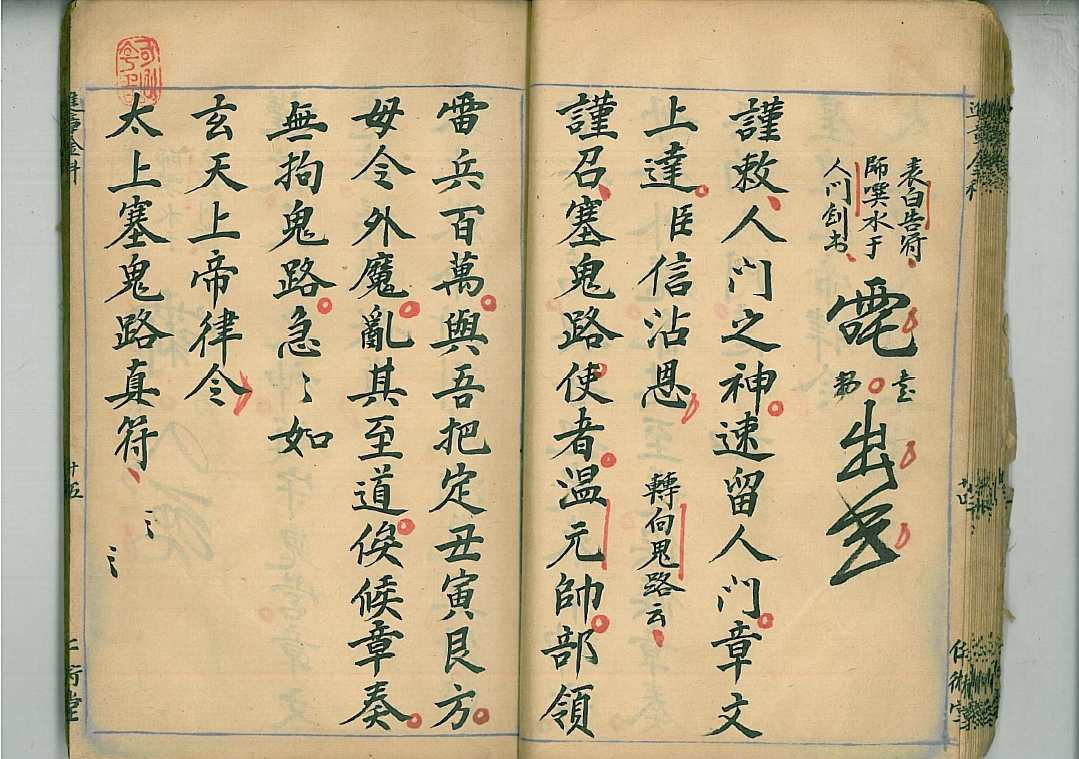 表白告符
師噀水于
人門劍書
出
謹敕人門之神速留人門章文
上達臣信沾恩 轉向鬼路云
謹召塞鬼路使者溫元帥部領
雷兵百萬與吾把定丑寅艮方
毋令外魔亂其至道俟候章奏
無拘鬼路急〻如
玄天上帝律令
太上塞鬼路真符
十五